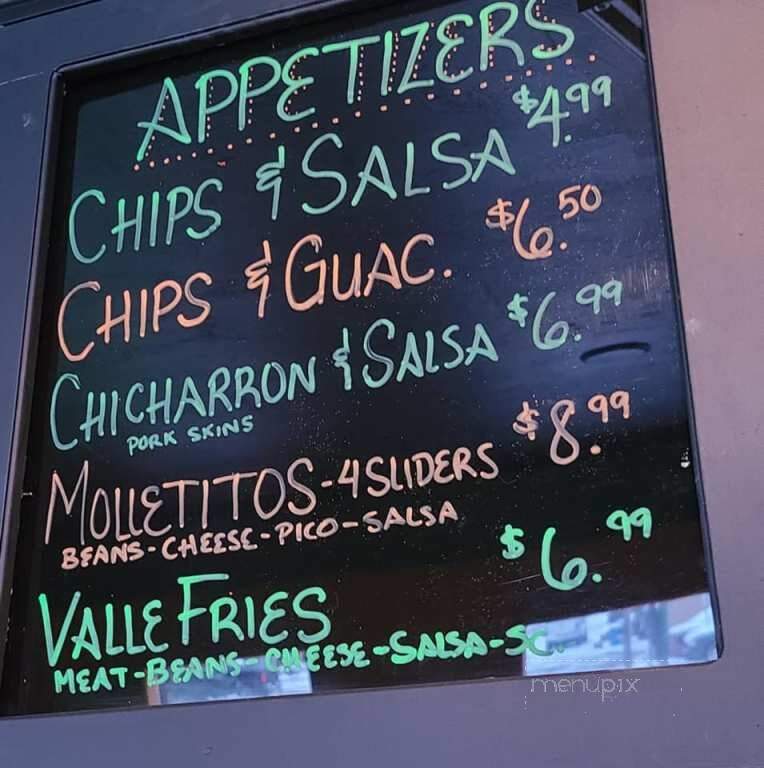 APPETIZERS
CHIPS & SALSA $4.99
CHIPS & GUAC. $6.50
CHICHARRON & SALSA $6.99
PORK SKINS
MOLLETITOS-4 SLIDERS $8.99
BEANS-CHEESE-PICO-SALSA
VALLE FRIES $6.99
MEAT-BEANS-CHEESE-SALSA-SC.
menupix